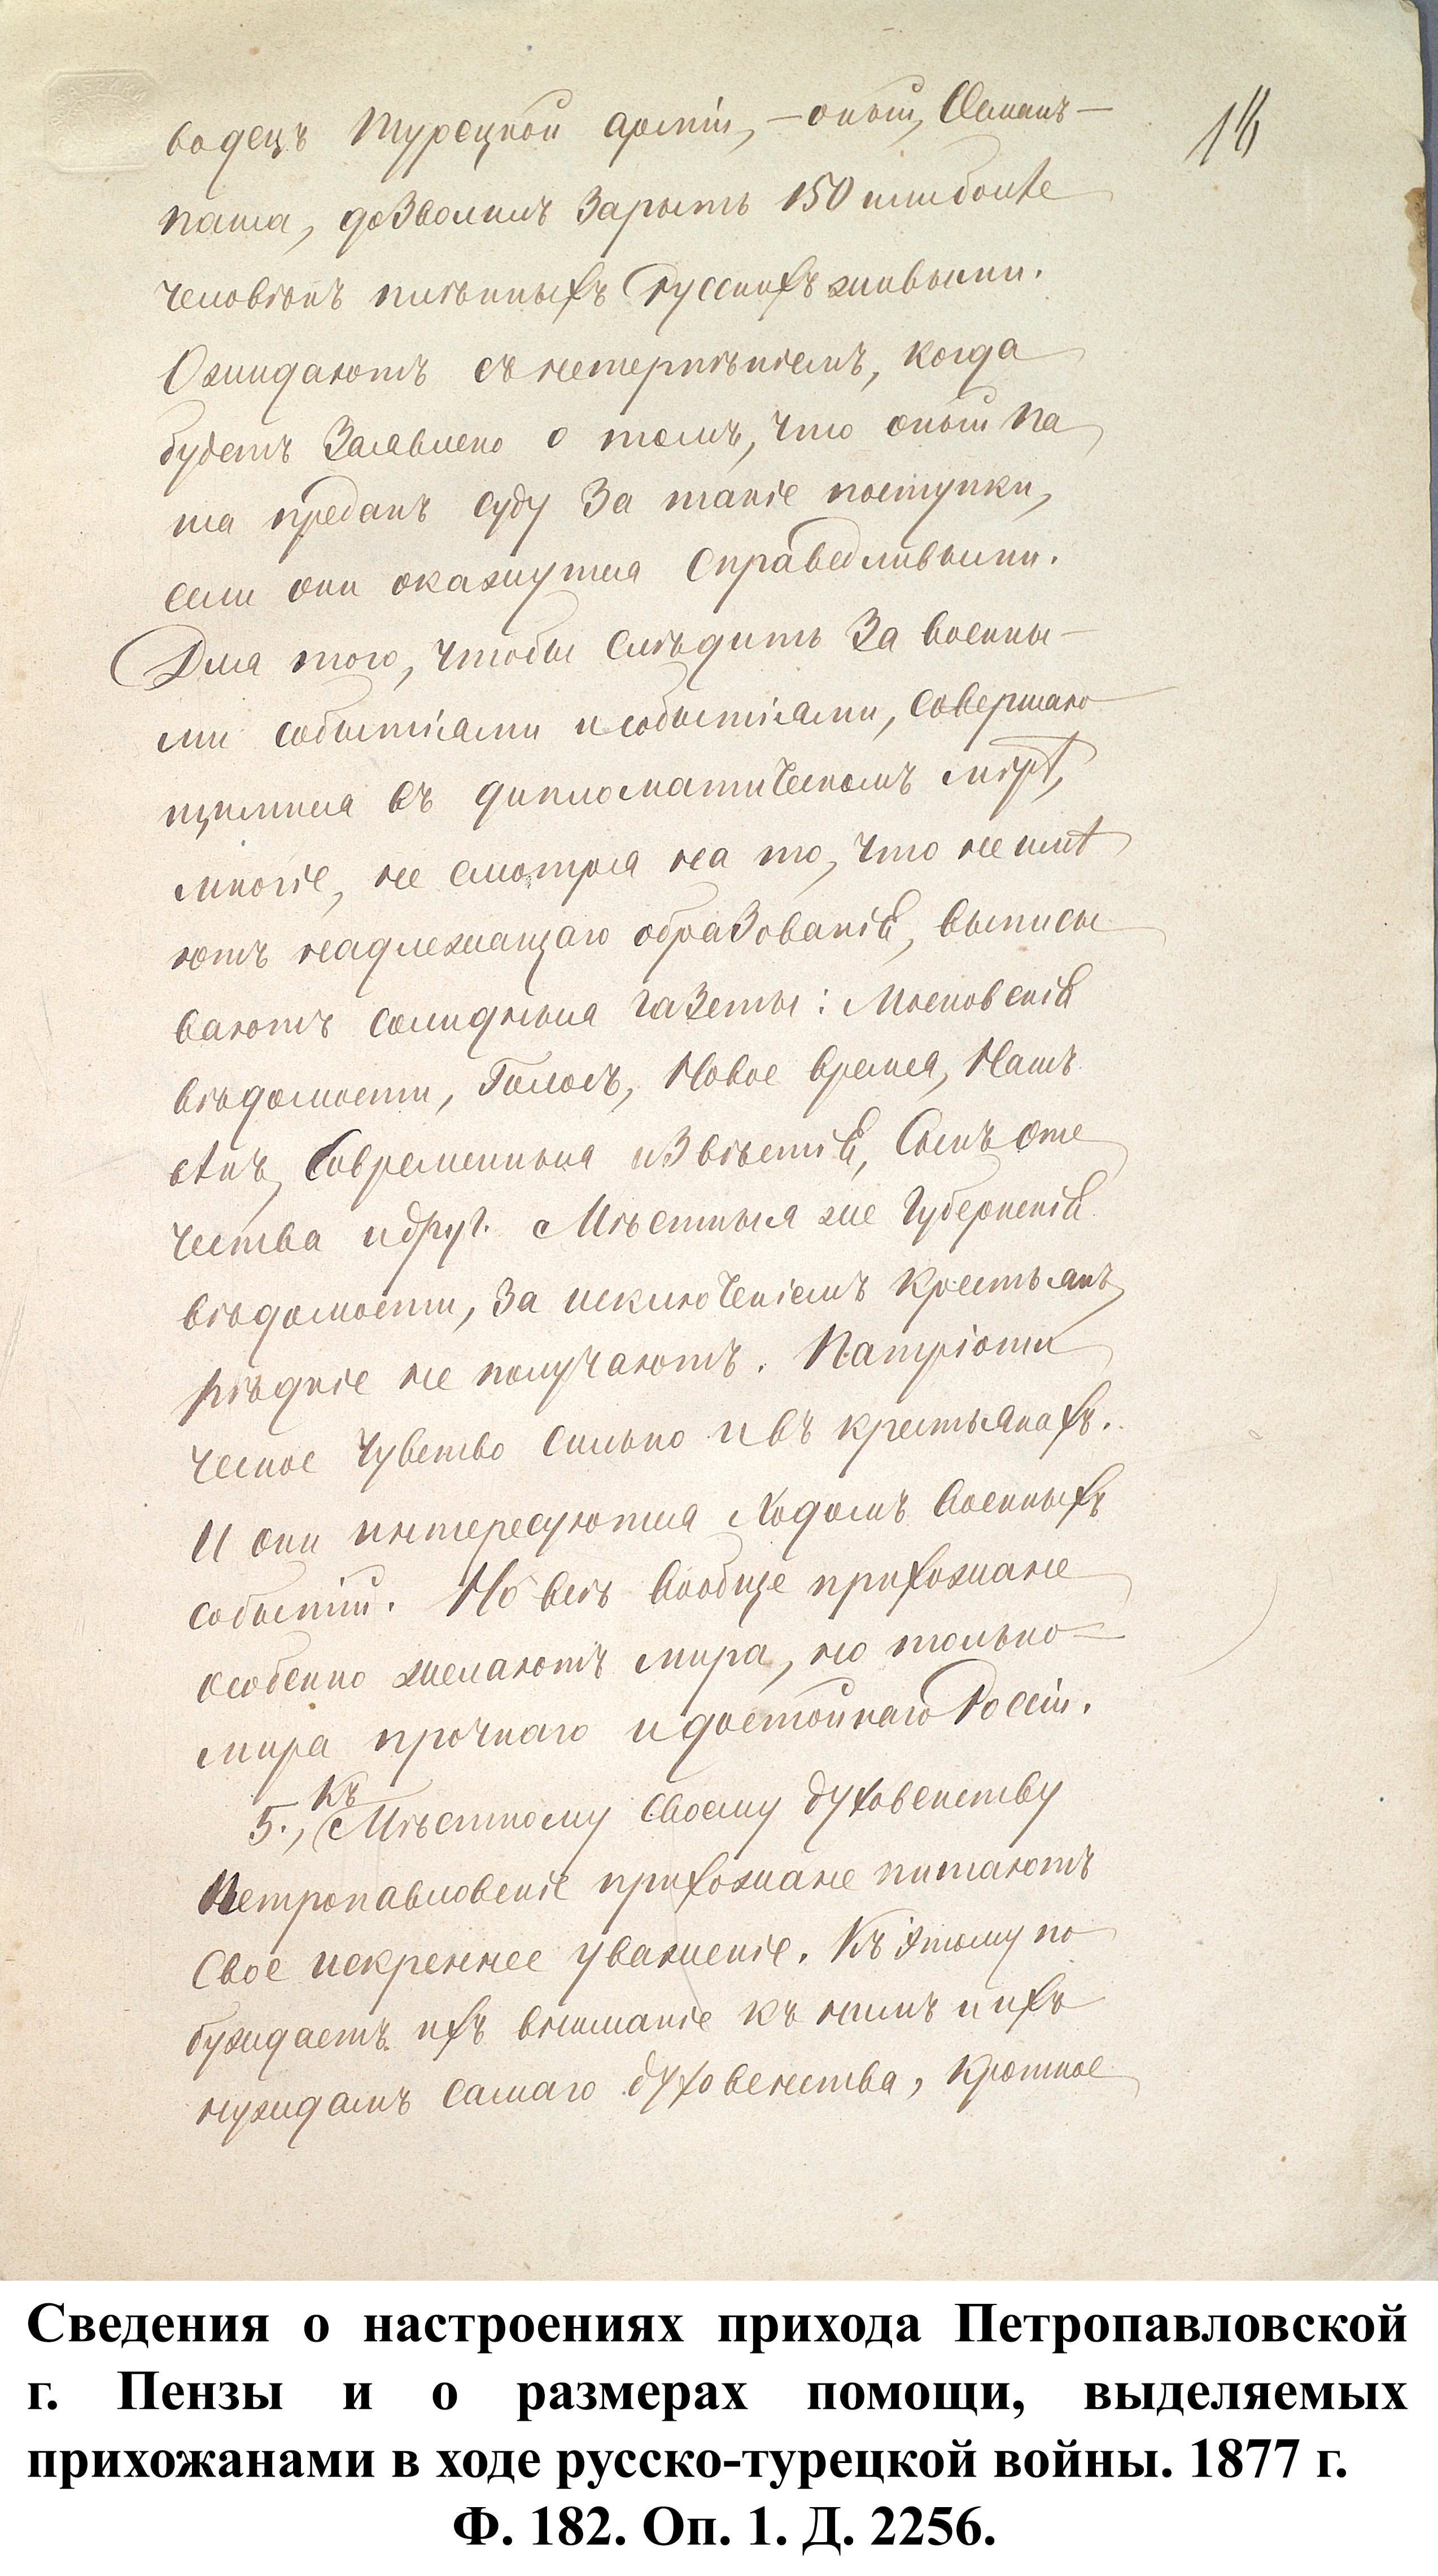 водецъ Турецкой арміи, – оный, Османъ –
паша, дозволилъ зарыть 150 или болѣе
человѣкъ плѣнныхъ Русскихъ живыми.
Ожидаютъ съ нетерпѣніемъ, когда
будетъ заявлено о томъ, что оный па
ша преданъ суду за такіе поступки,
если они окажутся справедливыми.
Для того, чтобы слѣдить за военны-
ми событіями и событіями, совершаю
щимися въ дипломатическомъ мірѣ,
многіе, не смотря на то, что не имѣ
ютъ надлежащаго образованія, выписы
ваютъ солидныя газеты: Московскія
вѣдомости, Голосъ, Новое время, Нашъ
вѣкъ, Современныя извѣстія, Сынъ оте
чества и друг. Мѣстныя же Губернскія
вѣдомости, за исключеніемъ крестьянъ,
рѣдкіе не получаютъ. Патріоти
ческое чувство сильно и въ крестьянахъ.
И они интересуются ходомъ военныхъ
событій. Но всѣ вообще прихожане
особенно желаютъ мира, но только –
мира прочнаго и достойнаго Россіи.
5., Къ Мѣстному своему духовенству
Петропавловскіе прихожане питаютъ
свое искреннее уваженіе. Къ этому по
буждаетъ ихъ вниманіе къ нимъ и ихъ
нуждамъ самаго духовенства, кроткое
Сведения о настроениях прихода Петропавловской
г. Пензы и о размерах помощи, выделяемых
прихожанами в ходе русско-турецкой войны. 1877 г.
Ф. 182. Оп. 1. Д. 2256.